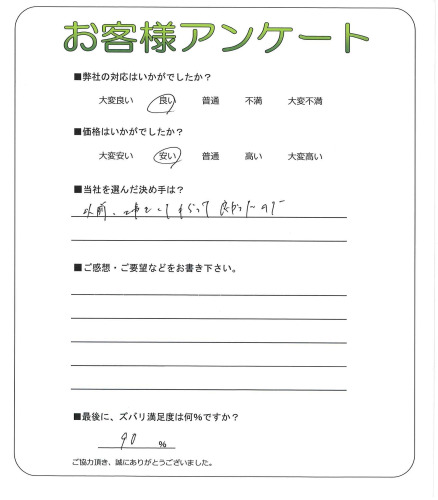 お客様アンケート
■弊社の対応はいかがでしたか？
大変良い 良い 普通 不満 大変不満
■価格はいかがでしたか？
大変安い 安い 普通 高い 大変高い
■当社を選んだ決め手は？
以前、してもらって良かったので
■ご感想・ご要望などをお書き下さい。
■最後に、ズバリ満足度は何%ですか？
90 %
ご協力頂き、誠にありがとうございました。